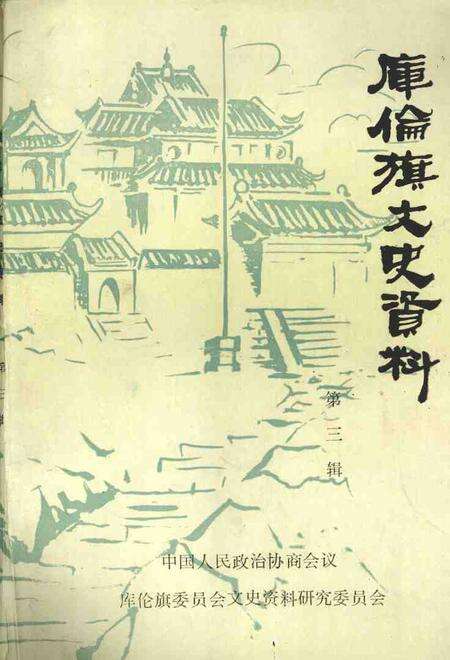 庫倫旗文史資料
第三辑
中国人民政治协商会议
库伦旗委员会文史资料研究委员会